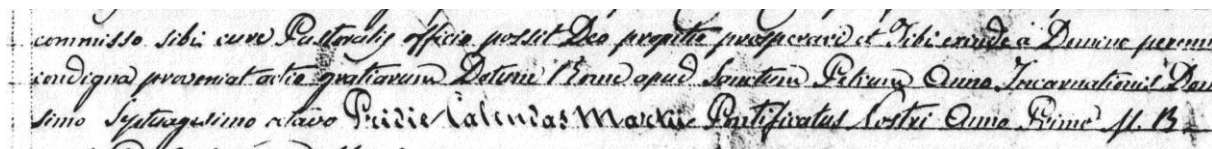 commisso sibi cure Pastoralis officio possit Deo propitio prosperari et Tibi exinde à Domino perenni
condigna proveniat actio gratiarum Datum Rome apud Sanctum Petrum Anno Incarnationis Dom
simo Septuagesimo octavo Pridie Calendas Martii Pontificatus Nostri Anno Primo